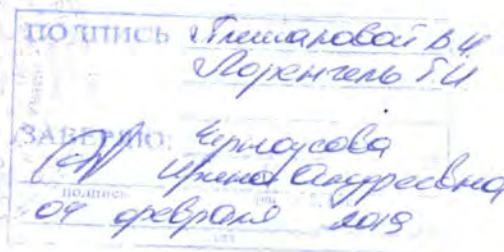 ПОДПИСЬ Плешановой В.И
Лоренгель Т.И
ЗАВЕРЯЮ: Черноусова
Ирина Андреевна
подпись
04 февраля 2019